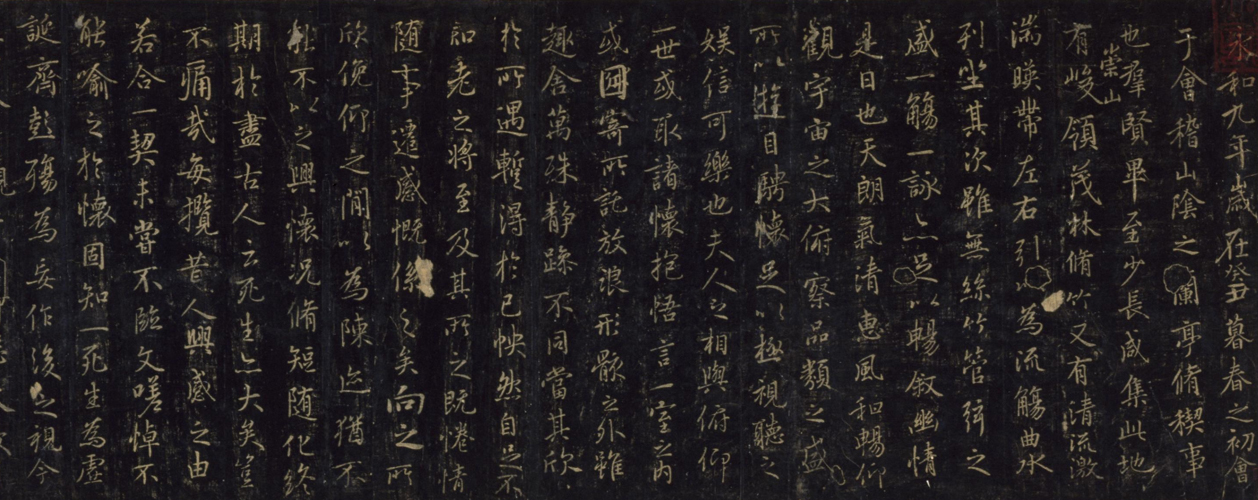 永和九年歲在癸丑暮春之初會
于會稽山陰之蘭亭脩稧事
也羣賢畢至少長咸集此地
有崇山峻領茂林脩竹又有清流激
湍暎帶左右引以為流觴曲水
列坐其次雖無絲竹管弦之
盛一觴一詠亦足以暢敘幽情
是日也天朗氣清惠風和暢仰
觀宇宙之大俯察品類之盛
所以遊目騁懷足以極視聽之
娛信可樂也夫人之相與俯仰
一世或取諸懷抱悟言一室之內
或因寄所託放浪形骸之外雖
趣舍萬殊靜躁不同當其欣
於所遇暫得於己怏然自足不
知老之將至及其所之既惓情
随事遷感慨係之矣向之所
欣俛仰之閒以為陳迹猶不
能不以之興懷況脩短随化終
期於盡古人云死生亦大矣豈
不痛哉每攬昔人興感之由
若合一契未嘗不臨文嗟悼不
能喻之於懷固知一死生為虛
誕齊彭殤為妄作後之視今